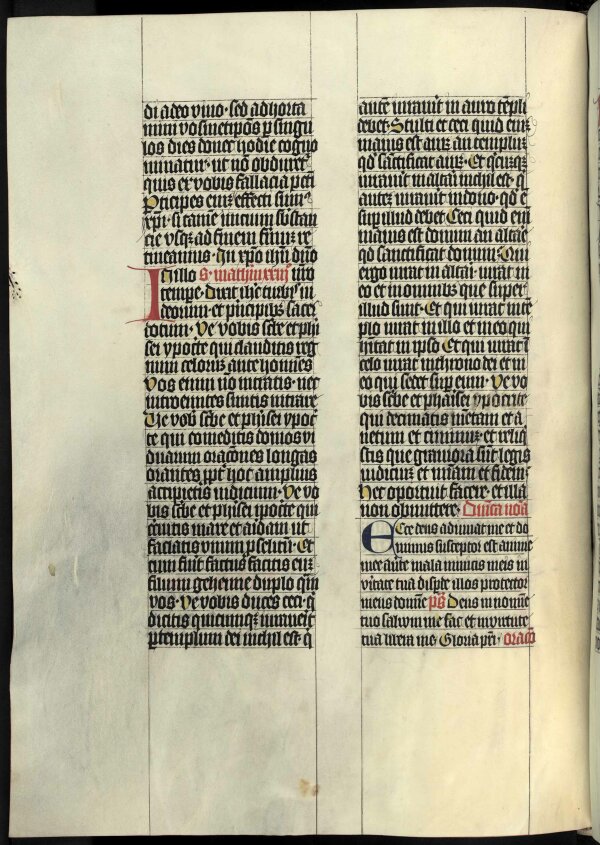 di a deo vivo · sed adhorta
mini vosmetip̃os p̱ singu
los dies donec hodie cog̃o
minatur · ut nõ obduret᷑
quis ex vobis fallacia pctĩ
Ꝑticipes enĩ effecti sumꝰ
xp̃i · si tamẽ inicium sb̃stan
cie usqꝫ ad finem firmũ re
tineamus · In xp̃o ihũ dño
In illo S. mathm̃ xxiii
tempe · Dixit ihc̃ turbis iu
deorum et pͥncipibꝫ sacer
dotum · Ve vobis scͥbe et phͣi
sei ypocͥte qui clauditis reg
num celorum ante homines
Vos enim nõ intratis · nec
introeuntes sinitis intrare
Ve vob̃ scͥbe et phͣisei ypocͥ
te qui comeditis domos vi
duarum orac̃ones longas
orantes ꝓpt̃ hoc amplius
accipietis iudicium · Ve vo
bis scͥbe et phͣisei ipocͥte qui
cͥcuitis mare et aridam ut
faciatis unum ꝓselitũ · Et
cum fuĩt factus facitis eum
filium gehenne duplo quã
vos · Ve vobis duces ceci · q
dicitis quicumqꝫ iurauerit
p̱ templum dei nichil est · q̃
autẽ iurauit in auro tẽpli
debet · Stulti et ceci quid enĩ
maius est auꝝ an templum
qd̃ sanctificat auꝝ · Et qͥcũqꝫ
iurauit in altari nichil est · q̃
autem iurauit in dono · qd̃ ẽ
sup illud debet Ceci quid enĩ
maius est donum an altare
qd̃ sanctificat donum · Qui
ergo iurat in altari · iurat in
eo et in omnibꝫ que super
illud sunt · Et qui iurat in tẽ
plo iurat in illo et in eo qui
hĩtat in ipso Et qui iurat ĩ
celo iurat in throno dei et in
eo qui sedet sup eum · Ve vo
bis scͥbe et phͣisei ypocrite
qui decimatis mẽtam et a
netum et ciminum · et reliq̃
stis que grauiora sũt legis
iudicium et mĩam et fidem
Hec oportuit facere · et illa
non obmittere · Dnica nõa
Ecce deus adiuuat me et do
minus susceptor est anime
mee aũte mala inimicis meis in
ũitate tua disp̱de illos protector
meus domĩe pͨs Deus in nomine
tuo saluum me fac et in ṽtute
tua libera me · Gloria pr̃i · orac̃o